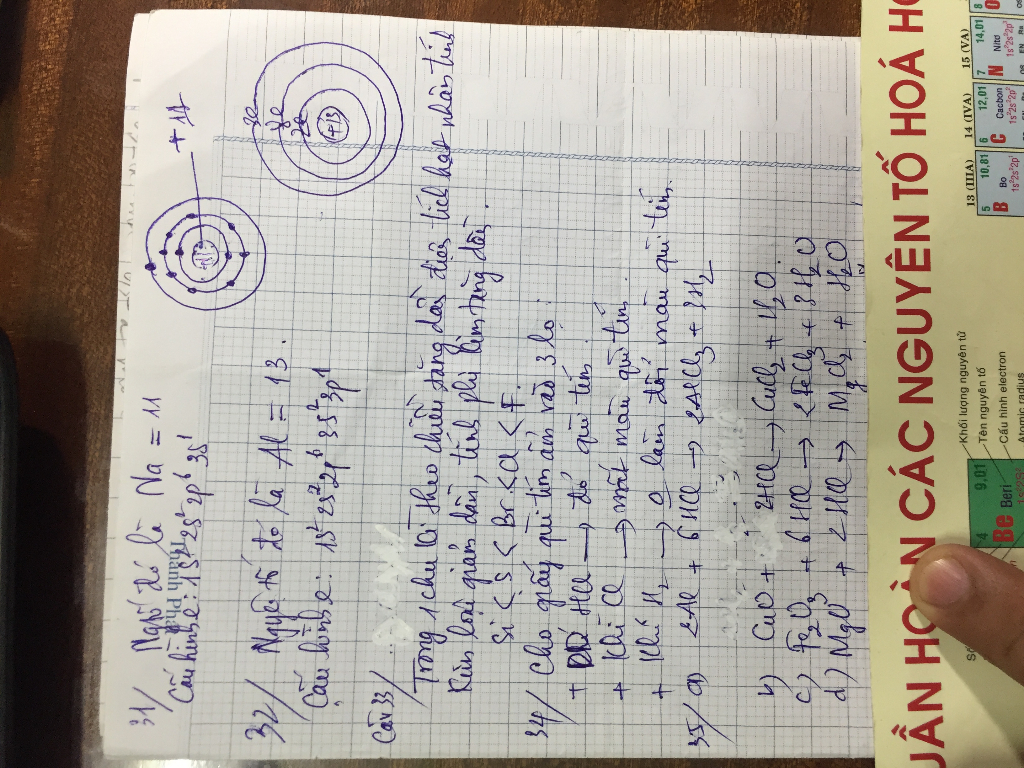 31/ Ngtố đó là Na = 11
Cấu hình e: 1s² 2s² 2p⁶ 3s¹
+11
32/ Nguyên tố đó là Al = 13.
Cấu hình e: 1s² 2s² 2p⁶ 3s² 3p¹
3e 8e 2e +13
Câu 33/
Trong 1 chu kì theo chiều tăng dần điện tích hạt nhân tính
kim loại giảm dần, tính phi kim tăng dần.
Si < S < Br < Cl < F.
34/ Cho giấy quì tím ẩm vào 3 lọ:
+ HCl → đỏ quì tím.
+ Khí Cl → mất màu quì tím.
+ Khí H₂ → 0 làm đổi màu quì tím.
35/ a) 2Al + 6HCl → 2AlCl₃ + 3H₂
b) CuO + 2HCl → CuCl₂ + H₂O.
c) Fe₂O₃ + 6HCl → 2FeCl₃ + 3H₂O
d) MgO + 2HCl → MgCl₂ + H₂O
UẦN HOÀN CÁC NGUYÊN TỐ HOÁ HỌ
Khối lượng nguyên tử
Tên nguyên tố
Cấu hình electron
Atomic radius
4 9,01
Be Beri
13 (IIIA)
5 10,81
B Bo
1s²2s²2p¹
14 (IVA)
6 12,01
C Cacbon
1s²2s²2p²
15 (VA)
7 14,01
N Nitơ
1s²2s²2p³
8